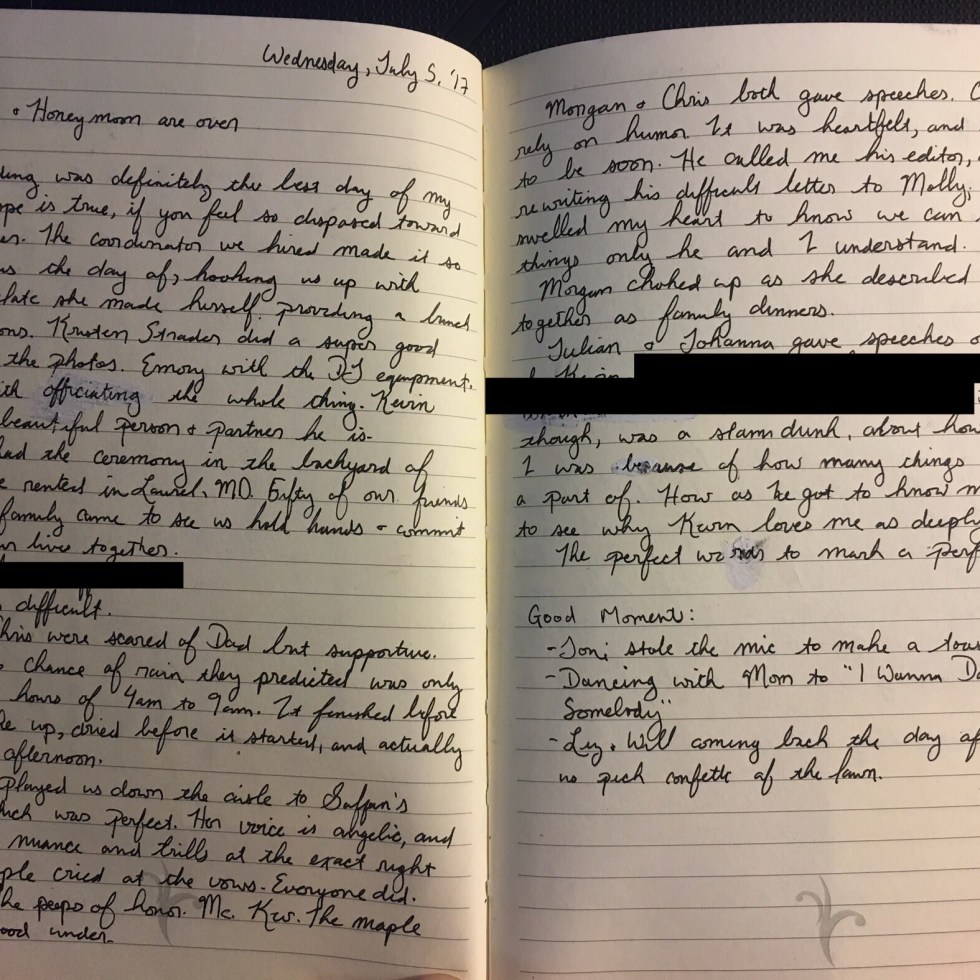 Wednesday, July 5, '17
& Honeymoon are over
ding was definitely the best day of my
ype is true, if you feel so disposed toward
es. The coordinator we hired made it so
us the day of, hooking us up with
late she made herself, providing a bunch
ons. Kristen Strader did a super good
the photos. Emory with the DJ equipment.
ith officiating the whole thing. Kevin
beautiful person & partner he is.
had the ceremony in the backyard of
e rented in Laurel, MD. Fifty of our friends
family came to see us hold hands & commit
ur lives together.
difficult.
hris were scared of Dad but supportive.
chance of rain they predicted was only
hours of 4am to 9am. It finished before
ke up, dried before it started, and actually
afternoon.
played us down the aisle to Sufjan's
hich was perfect. Her voice is angelic, and
nuance and trills at the exact right
ple cried at the vows. Everyone did.
he peeps of honor. Me. Kev. The maple
ood under.
Morgan & Chris both gave speeches. C
rely on humor. It was heartfelt, and
to be soon. He called me his editor,
rewriting his difficult letter to Molly;
swelled my heart to know we can
things only he and I understand.
Morgan choked up as she described
together as family dinners.
Julian & Johanna gave speeches o
though, was a slam dunk, about how
I was because of how many things
a part of. How as he got to know m
to see why Kevin loves me as deeply
The perfect words to mark a perf
Good Moment:
- Joni stole the mic to make a toas
- Dancing with Mom to "I Wanna Da
Somebody"
- Liz & Will coming back the day af
us pick confetti of the lawn.